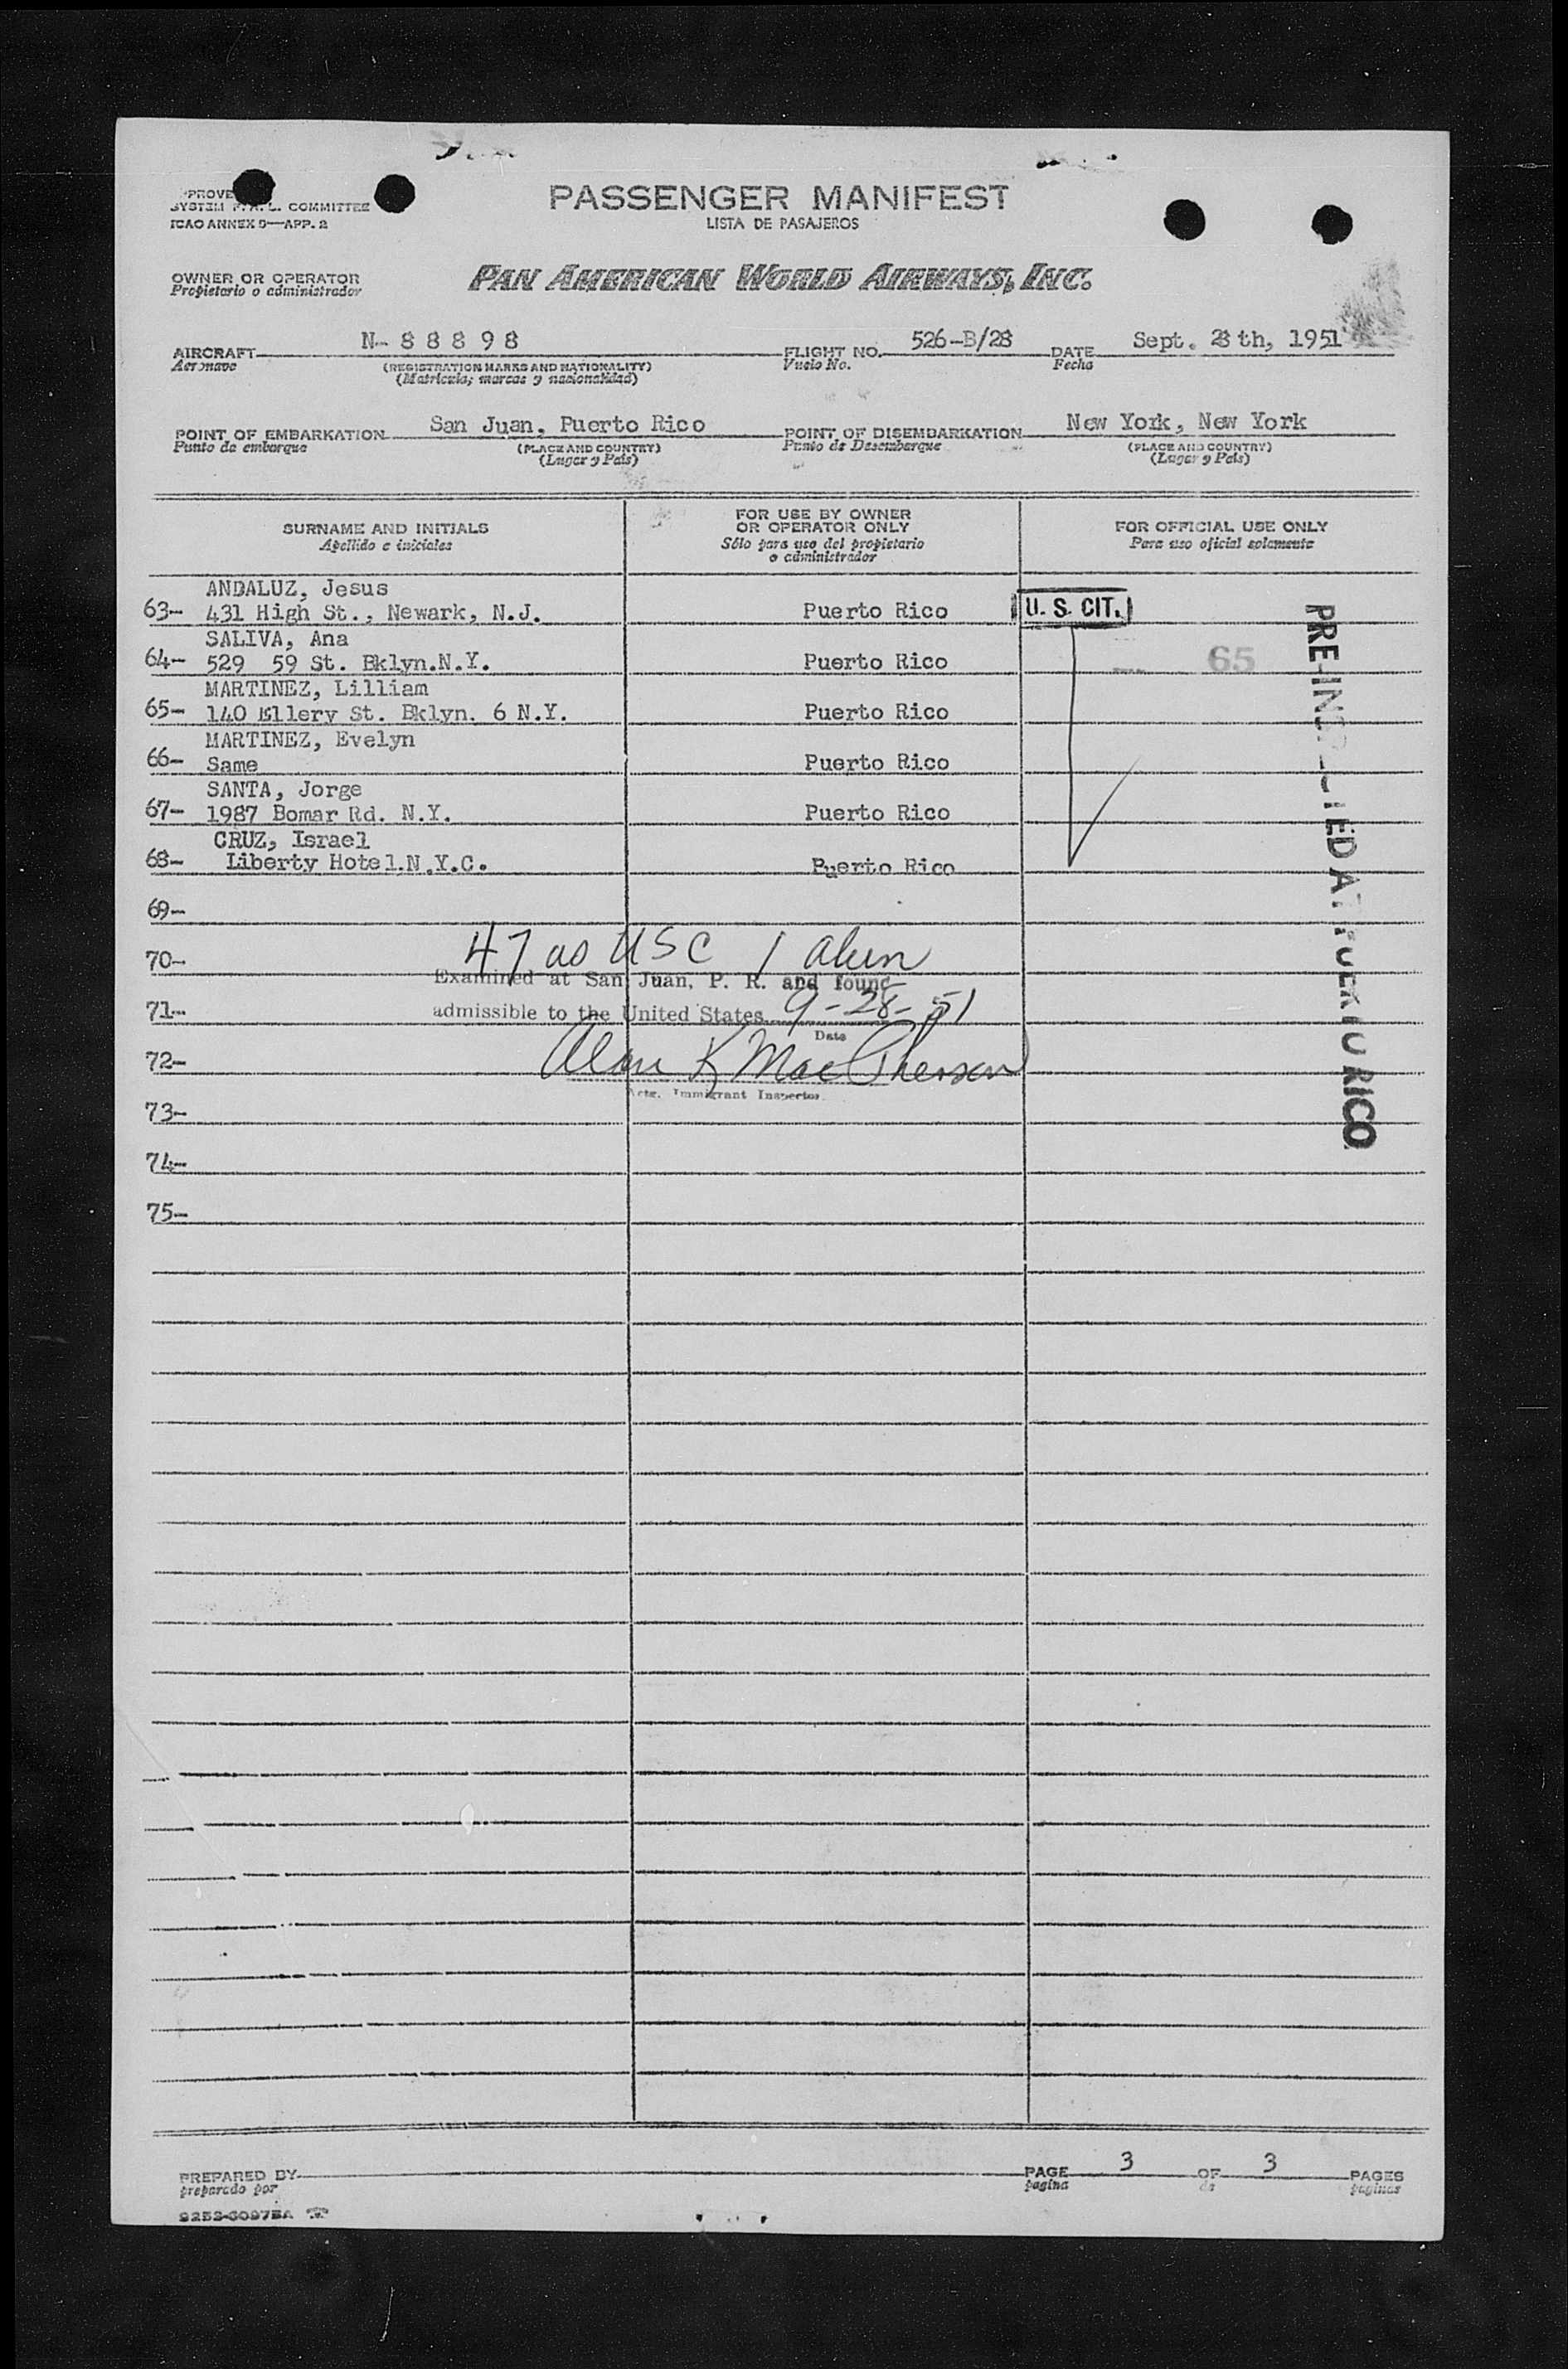 PASSENGER MANIFEST
LISTA DE PASAJEROS
COMMITTEE
ICAO ANNEX 9—APP. 2
OWNER OR OPERATOR
Propietario o administrador
PAN AMERICAN WORLD AIRWAYS, INC.
AIRCRAFT N- 8 8 8 9 8 FLIGHT NO. 526-B/28 DATE Sept. 28th, 1951
Aeronave (REGISTRATION MARKS AND NATIONALITY) Vuelo No. Fecha
(Matricula; marcas y nacionalidad)
POINT OF EMBARKATION San Juan, Puerto Rico POINT OF DISEMBARKATION New York, New York
Punto de embarque (PLACE AND COUNTRY) Punto de Desembarque (PLACE AND COUNTRY)
(Lugar y País) (Lugar y País)
SURNAME AND INITIALS
Apellido e iniciales
FOR USE BY OWNER
OR OPERATOR ONLY
Sólo para uso del propietario
o administrador
FOR OFFICIAL USE ONLY
Para uso oficial solamente
ANDALUZ, Jesus
63- 431 High St., Newark, N.J. Puerto Rico U. S. CIT.
SALIVA, Ana
64- 529 59 St. Bklyn.N.Y. Puerto Rico 65
MARTINEZ, Lilliam
65- 140 Ellery St. Bklyn. 6 N.Y. Puerto Rico
MARTINEZ, Evelyn
66- Same Puerto Rico
SANTA, Jorge
67- 1987 Bomar Rd. N.Y. Puerto Rico
CRUZ, Israel
68- Liberty Hotel.N.Y.C. Puerto Rico
69-
70- 47 as USC 1 alien
Examined at San Juan, P. R. and found
71- admissible to the United States 9-28-51
Date
72- Alan K MacPherson
Actg. Immigrant Inspector
73-
74-
75-
PRE-INSPECTED AT PUERTO RICO
PREPARED BY PAGE 3 OF 3 PAGES
preparado por pagina de paginas